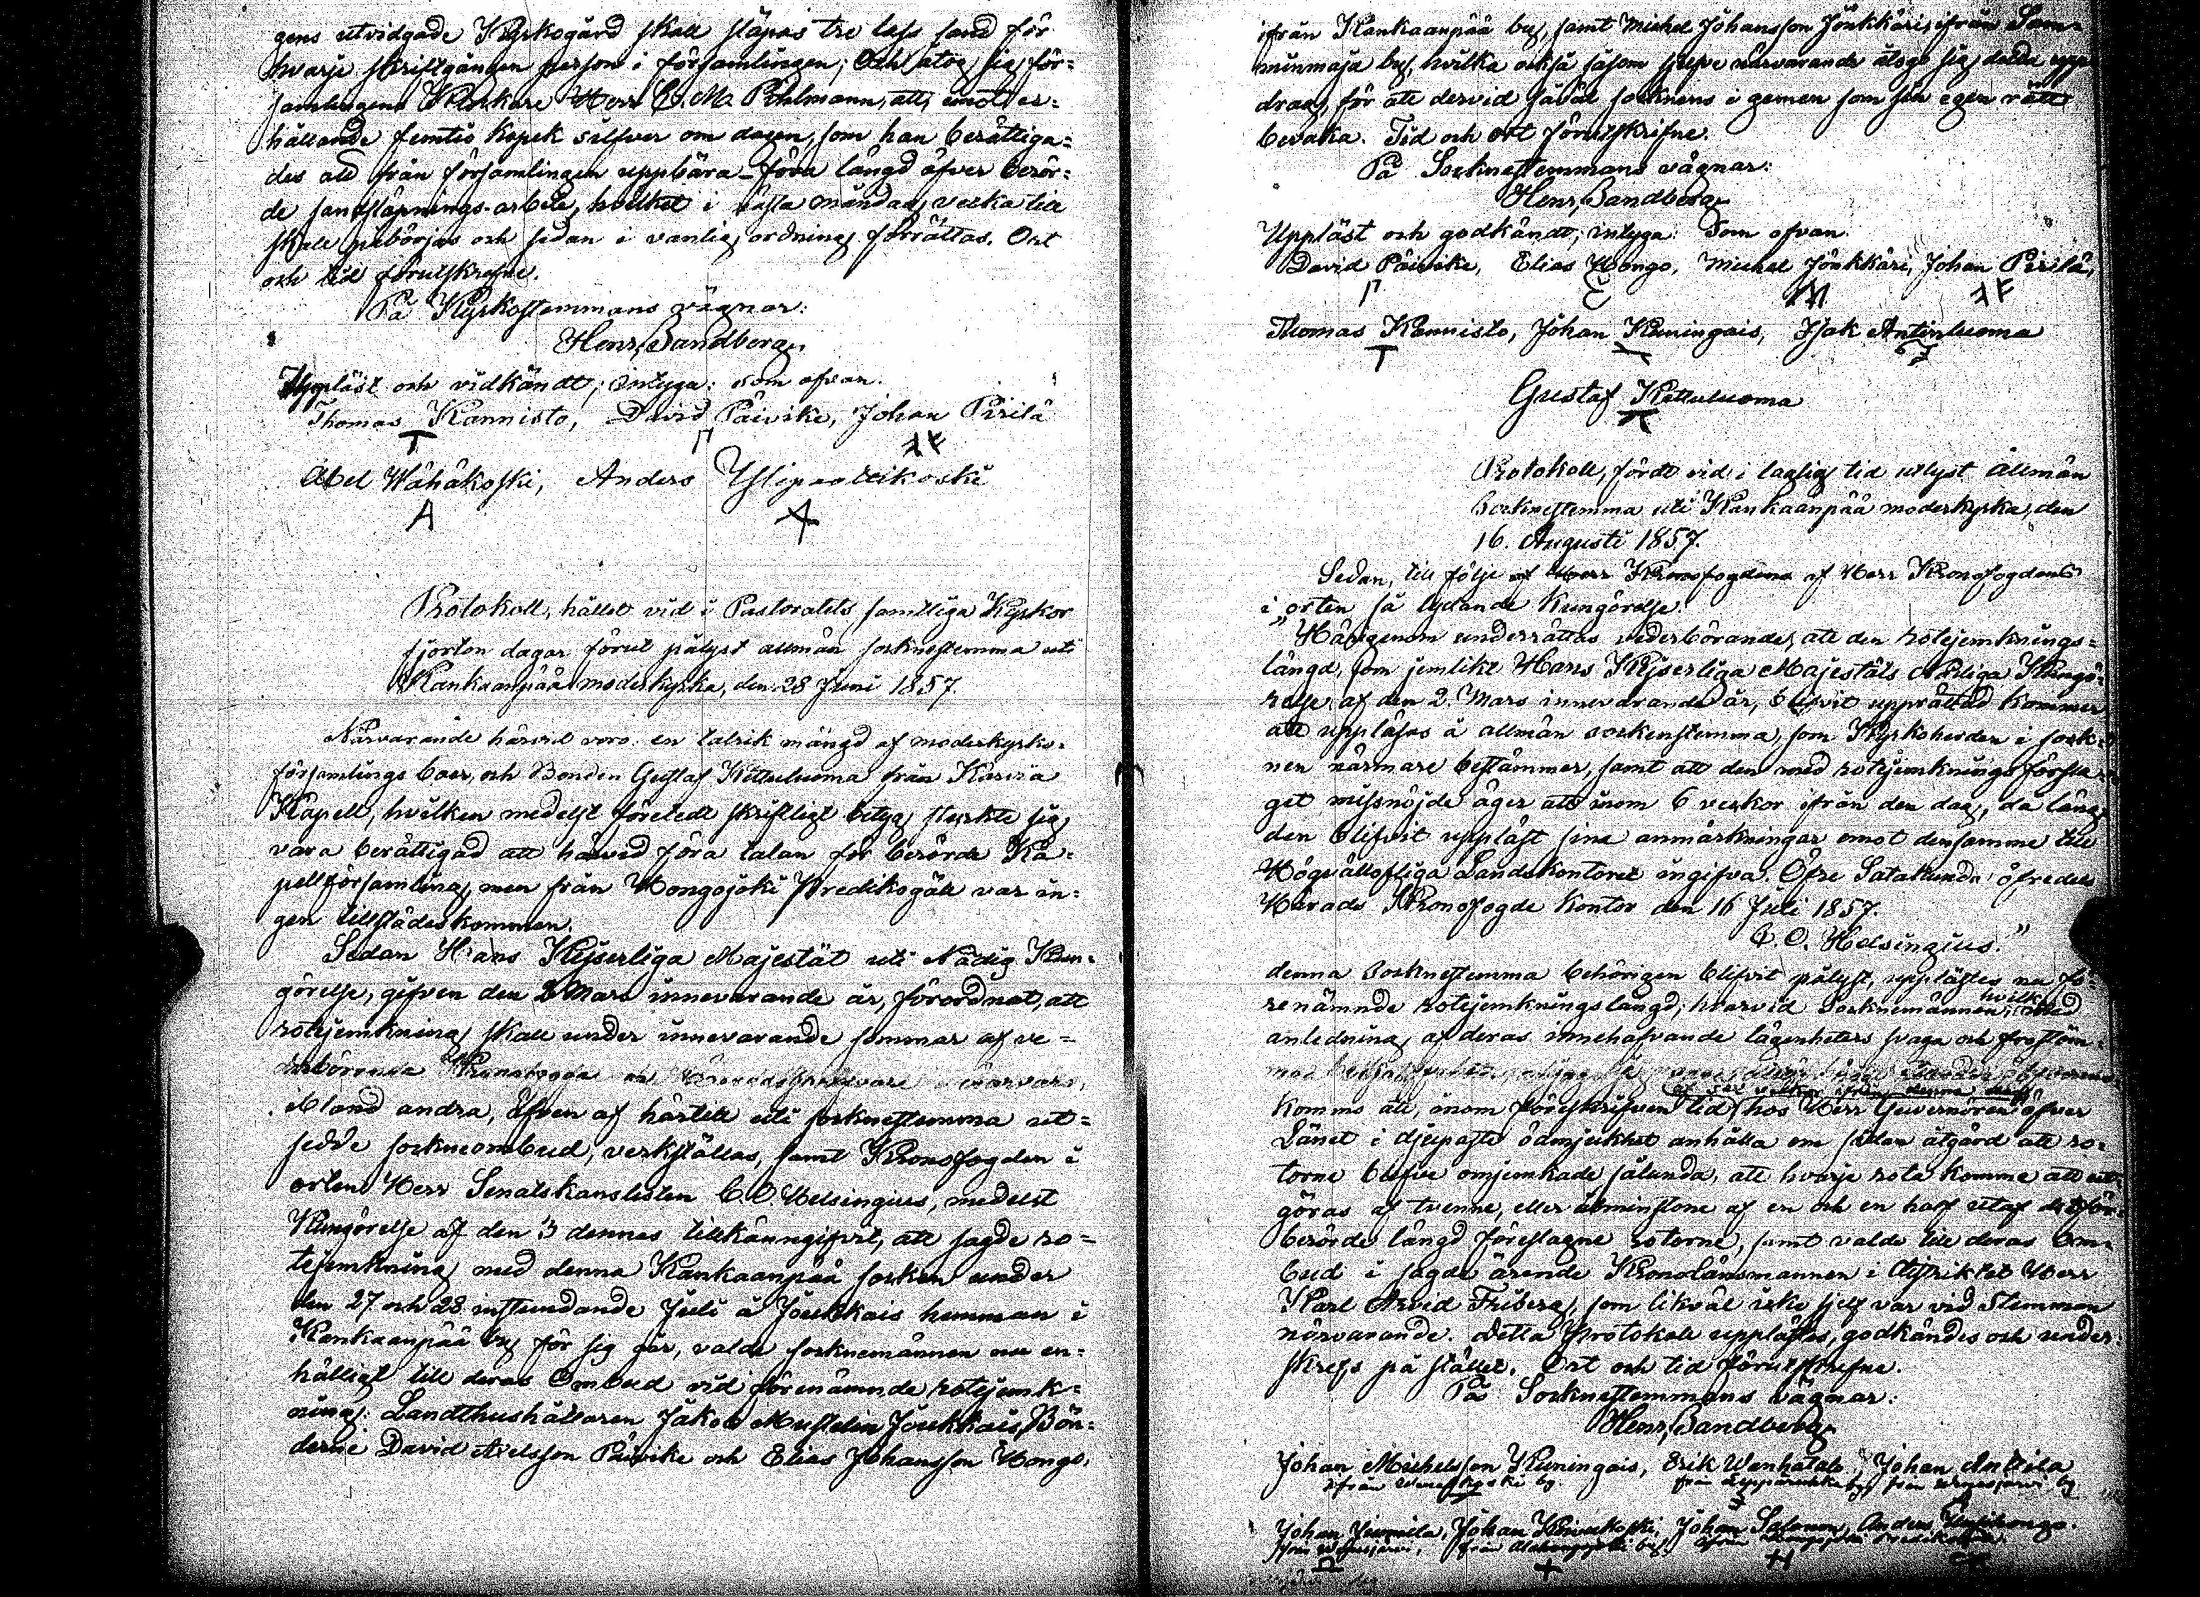 gens utvidgade Kyrkogård skall släpas tre lass sand för
hvarje skriftgången person i församlingen; Och åtog sig för-
samlingens Klockare Herr C. M. Pihlmann, att, emot er-
hållande femtio kopek silfver om dagen, som han berättiga-
des att från församlingen uppbära föra längd öfver berör-
de sandsläpnings-arbete, hvilket i nästa måndags vecka till
skall påbörjas och sedan i vanlig ordning förrättas. Ort
och tid förutskrefne.
På Kyrkostemmans vägnar:
Henr. Sandberg
Uppläst och vidkändt, intyga: som ofvan.
Thomas Kannisto, David Päivike, Johan Pirilä
Abel Wähäkoski, Anders Ylipaattikoski
A
Protokoll, hållet vid i Pastoratets samtliga Kyrkor
fjorton dagar förut pålyst allmän socknestemma uti
Kankaanpää moderkyrka, den 28 Juni 1857.
Närvarande härvid voro en talrik mängd af moderkyrko-
församlings boer, och Bonden Gustaf Kettuluoma från Karvia
Kapell, hvilken medelst företedt skriftligt betyg styrkte sig
vara berättigad att härvid föra talan för berörde Ka-
pellförsamling, men från Hongojoki Predikogäll var in-
gen tillstädeskommen.
Sedan Hans Kejserliga Majestät uti Nådig Kun-
görelse, gifven den 2 Mars innevarande år, förordnat, att
rotejemkning skall under innevarande sommar af ve-
derbörande Kronofogde och Häradsskrifvare i närvaro,
ibland andra, äfven af härtill uti socknestemma ut-
sedde sockneombud, verkställas, samt Kronofogden i
orten Herr Senatskanslisten C. O. Helsingius, medelst
Kungörelse af den 3 dennes tillkännagifvit, att sagde ro-
tejemkning med denna Kankaanpää socken under
den 27 och 28 instundande Juli å Joukkais hemman i
Kankaanpää by för sig går, valde socknemännen nu en-
hälligt till deras Ombud vid förenämnde rotejemk-
ning: Landthushållaren Jakob Mustelin Joukkais, Bön-
derne David Axelsson Päivike och Elias Johansson Hongo,
ifrån Kankaanpää by, samt Michel Johansson Jönkkäri, ifrån Sam-
minmaja by, hvilka också såsom sjelfve närvarande åtogo sig detta upp-
drag, för att dervid såväl socknens i gemen som sin egen rätt
bevaka. Tid och ort förutskrifne.
På Socknestemmans vägnar:
Henr. Sandberg
Uppläst och godkändt; intyga: Som ofvan.
David Päivike, Elias Hongo, Michel Jönkkäri, Johan Pirilä,
Thomas Kannisto, Johan Kuningais, Isak Antinluoma
Gustaf Kettuluoma
Protokoll, fördt vid i laglig tid utlyst Allmän
Socknestemma uti Kankaanpää moderkyrka, den
16. Augusti 1857.
Sedan, till följe af Herr Kronofogdens af Herr Kronofogdens
i orten så lydande Kungörelse:
"Härigenom underrättas vederbörande, att den rotejemknings-
längd, som jemlikt Hans Kejserliga Majestäts Nådiga Kungö-
relse af den 2. Mars innevarande år, blifvit upprättad kommer
att uppläsas å allmän sockenstemma, som Kyrkoherden i sock-
nen närmare bestämmer, samt att den med rotejemknings försla-
get missnöjde äger att inom 6 veckor ifrån den dag, då läng-
den blifvit uppläst sina anmärkningar emot densamma till
Högvällofliga Landskontoret ingifva. Öfre Satakunda öfredels
Härads Kronofogde Kontor den 16 Juli 1857.
C. O. Helsingius."
denna Socknestemma behörigen blifvit pålyst, upplästes nu fö-
renämnde rotejemkningslängd; hvarvid Socknemännen, hvilka med
anledning af deras innehafvande lägenheters svaga och frostöm-
komma att, inom föreskrifven tid af sex veckor ifrån denna dag hos Herr Guvernören öfver
Länet i djupaste ödmjukhet anhålla om sådan åtgärd att ro-
torne blifva omjemkade sålunda, att hvarje rota komme att ut-
göras af tvenne, eller åtminstone af en och en half utaf de i för-
berörde längd föreslagne rotorne, samt valde till deras Om-
bud i sagde ärende Kronolänsmannen i distriktet Herr
Karl Arvid Friberg, som likväl icke sjelf var vid Stemman
närvarande. Detta Protokoll upplästes, godkändes och under-
skrefs på stället. Ort och tid förutskrefne.
På Socknestemmans vägnar:
Henr. Sandberg
Johan Michelsson Kuningais, Erik Wanhatalo Johan Anttila
Johan Jiomila, Johan Kiviukoski, Johan Salomon, Anders